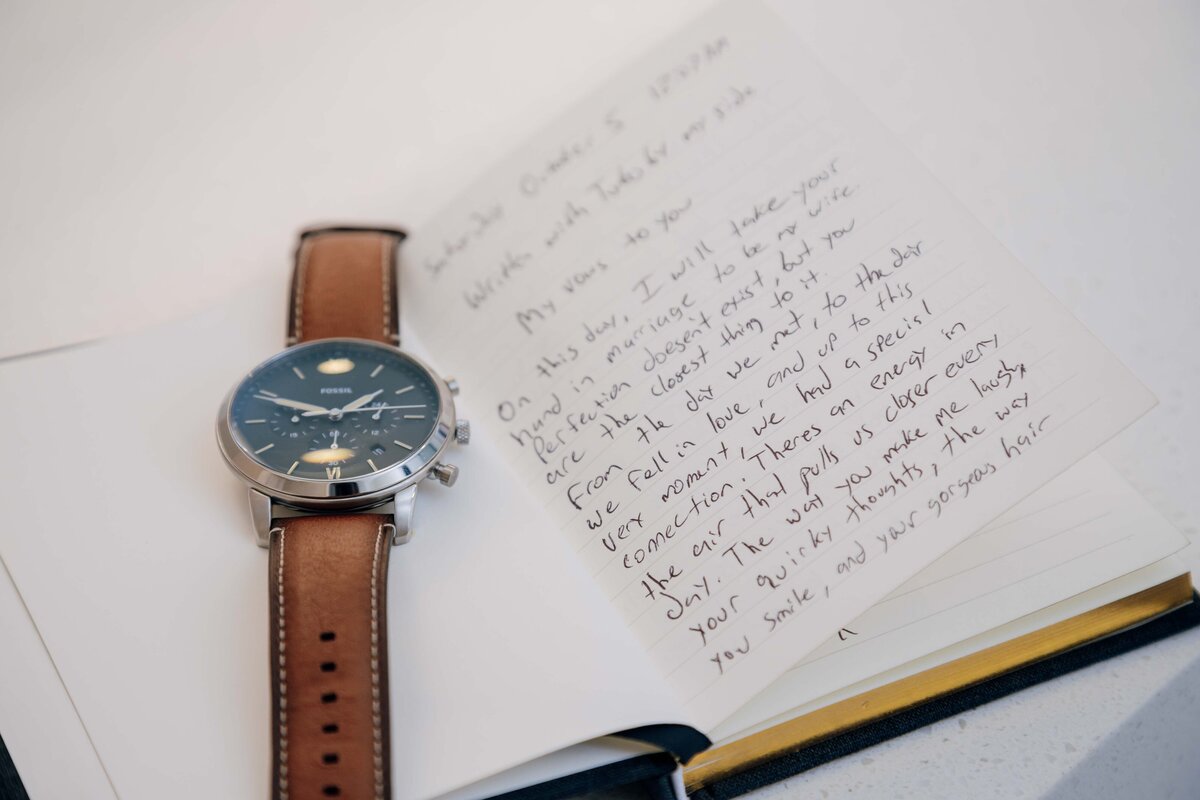 FOSSIL
24
12
60
30
Saturday October 5 12:07 AM
Written with Turbo by my side
My vows to you
On this day, I will take your
hand in marriage to be my wife.
Perfection doesen't exist, but you
are the closest thing to it.
From the day we met, to the day
we fell in love, and up to this
very moment, we had a special
connection. Theres an energy in
the air that pulls us closer every
day. The way you make me laugh,
your quirky thoughts, the way
you smile, and your gorgeous hair